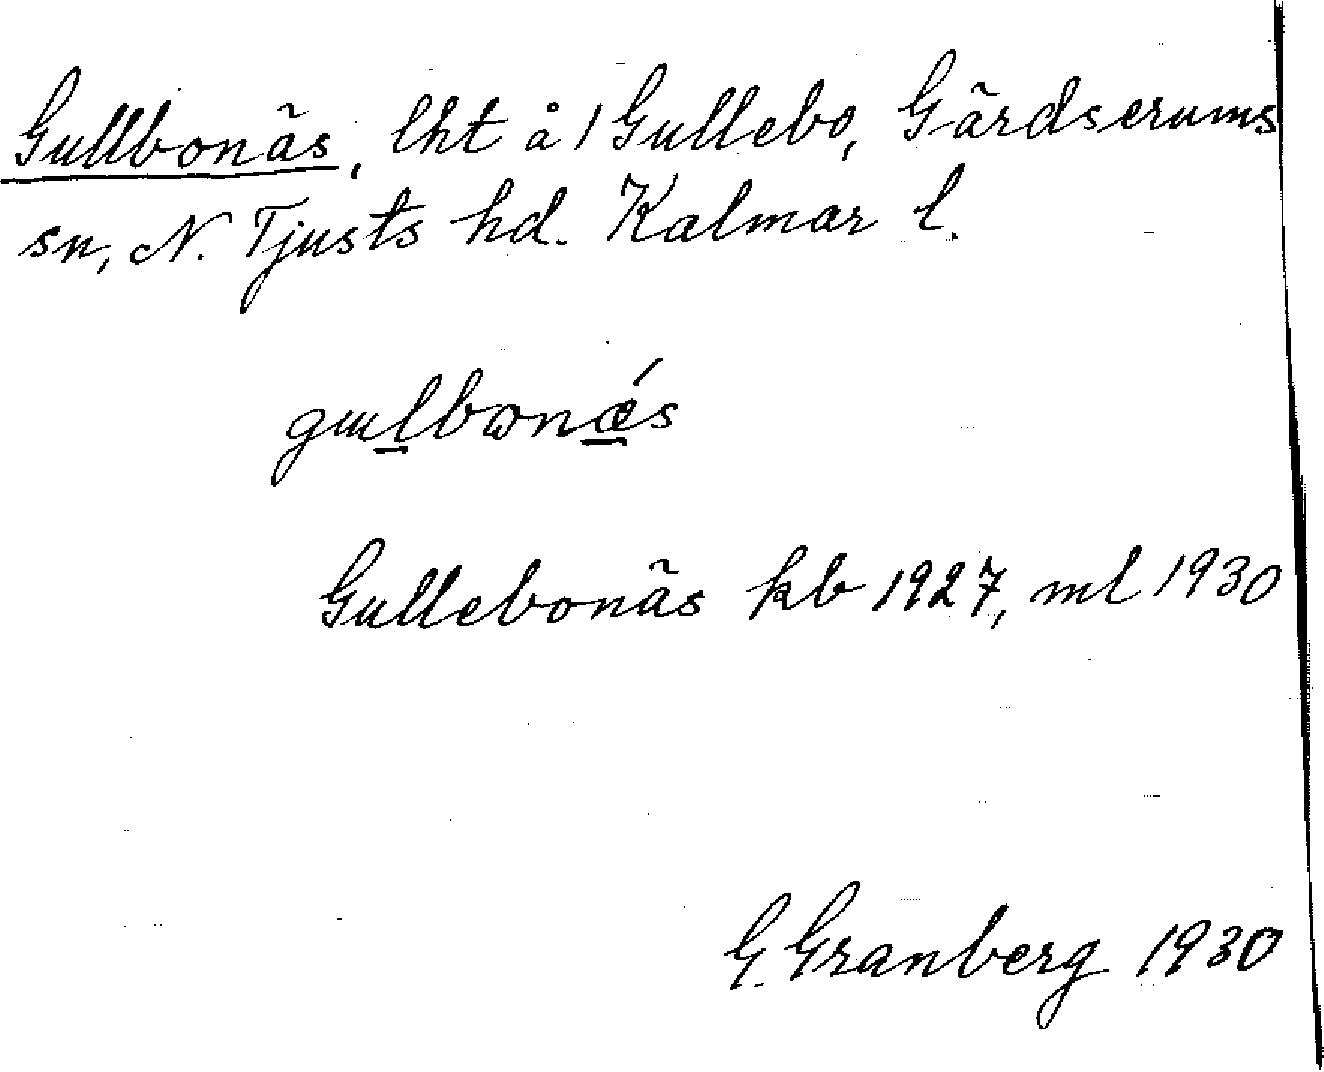 Gullbonäs, lht å 1 Gullebo, Gärdserums
sn, N. Tjusts hd. Kalmar l.
gɯlbωnǽs
Gullebonäs kb 1927, ml 1930
G. Granberg 1930